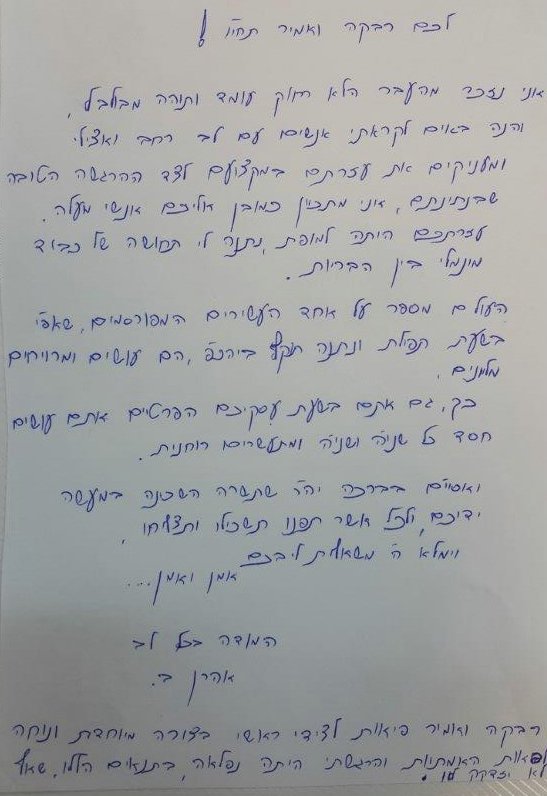 לכם רבקה ואמיר תחיו !
אני נזכר מהעבר הלא רחוק עומד ותוהה מבולבל,
והנה באים לקראתי אנשים עם לב רחב ואצילי
ומעניקים את עזרתם במקצועם לצד ההרגשה הטובה
שבנתינתם, אני מתכוין כמובן אליכם אנשי מעלה.
עזרתכם היתה למופת, נתנה לי תחושה של כבוד
מינמלי בין הבריות.
העולם מספר על אחד העשירים המפורסמים, שאפי'
בשעת תפילת ונתנה תוקף ביוהכ"פ, הם עושים ומרויחים
מליונים.
כך, גם אתם בשעת עסקיכם הפרטים אתם עושים
חסד כל שניה ושניה ומתעשרים רוחנית.
ואסיים בברכה יה"ר שתשרה השכינה במעשה
ידיכם, ולכל אשר תפנו תשכילו ותצליחו,
וימלא ה' משאלות ליבכם
אמן ואמן....
המודה בכל לב
אהרן ב.
רבקה ואמיר פיאות לצידי ראשי בצורה מיוחדת ונוחה
האמתיות והרגשתי היתה נפלאה, בתנאים הללו, שאף
לא יזדקק לזו.